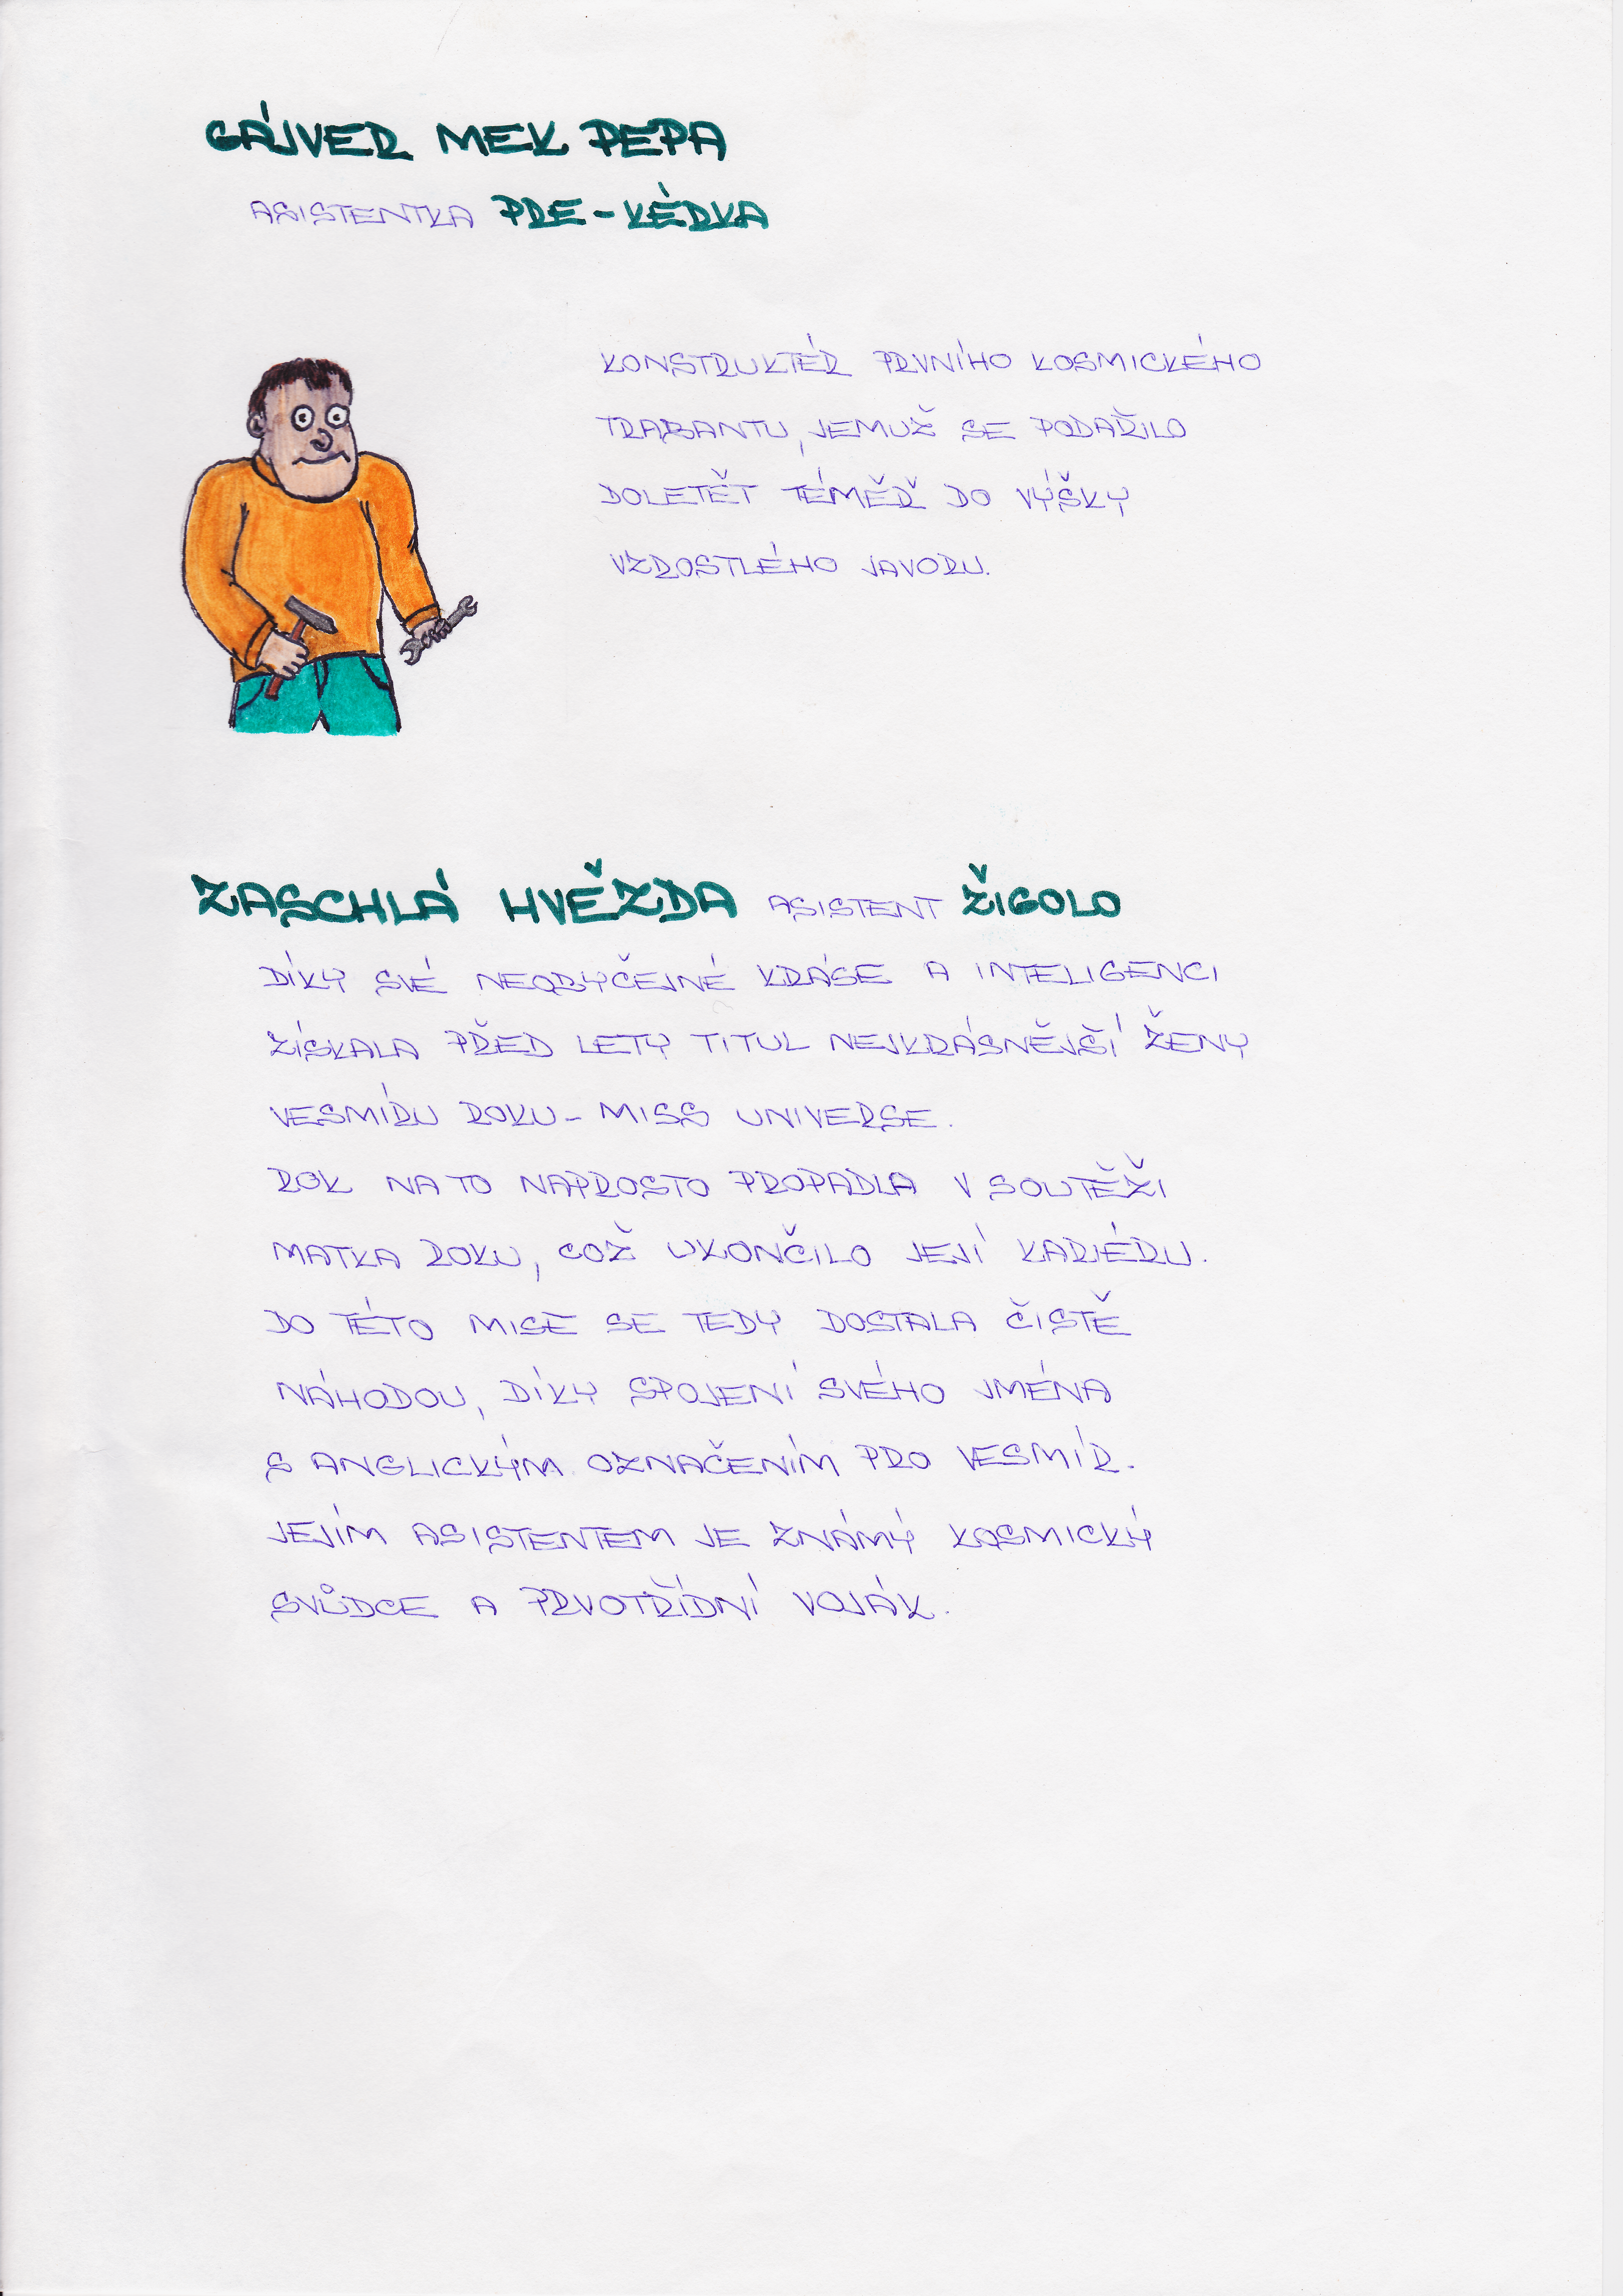 GÁJVER MEK PEPA
ASISTENTKA PRE-KÉRKA
KONSTRUKTÉR PRVNÍHO KOSMICKÉHO
TRABANTU, JEMUŽ SE PODAŘILO
DOLETĚT TÉMĚŘ DO VÝŠKY
VZROSTLÉHO JAVORU.
ZASCHLÁ HVĚZDA ASISTENT ŽIGOLO
DÍKY SVÉ NEOBYČEJNÉ KRÁSE A INTELIGENCI
ZÍSKALA PŘED LETY TITUL NEJKRÁSNĚJŠÍ ŽENY
VESMÍRU ROKU - MISS UNIVERSE.
ROK NA TO NAPROSTO PROPADLA V SOUTĚŽI
MATKA ROKU, COŽ UKONČILO JEJÍ KARIÉRU.
DO TÉTO MISE SE TEDY DOSTALA ČISTĚ
NÁHODOU, DÍKY SPOJENÍ SVÉHO JMÉNA
S ANGLICKÝM OZNAČENÍM PRO VESMÍR.
JEJÍM ASISTENTEM JE ZNÁMÝ KOSMICKÝ
SVŮDCE A PRVOTŘÍDNÍ VOJÁK.